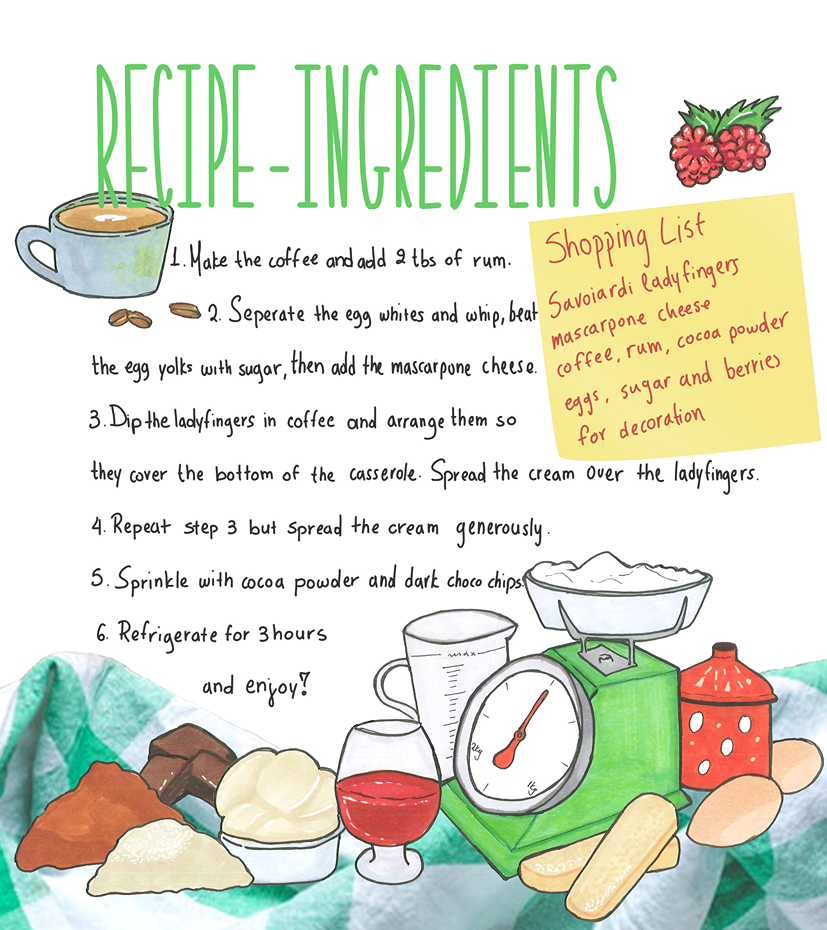 RECIPE-INGREDIENTS
1. Make the coffee and add 2 tbs of rum.
2. Seperate the egg whites and whip, beat
the egg yolks with sugar, then add the mascarpone cheese.
3. Dip the ladyfingers in coffee and arrange them so
they cover the bottom of the casserole. Spread the cream over the ladyfingers.
4. Repeat step 3 but spread the cream generously.
5. Sprinkle with cocoa powder and dark choco chips.
6. Refrigerate for 3 hours
and enjoy!
Shopping List
Savoiardi ladyfingers
mascarpone cheese
coffee, rum, cocoa powder
eggs, sugar and berries
for decoration
max
2kg
1kg